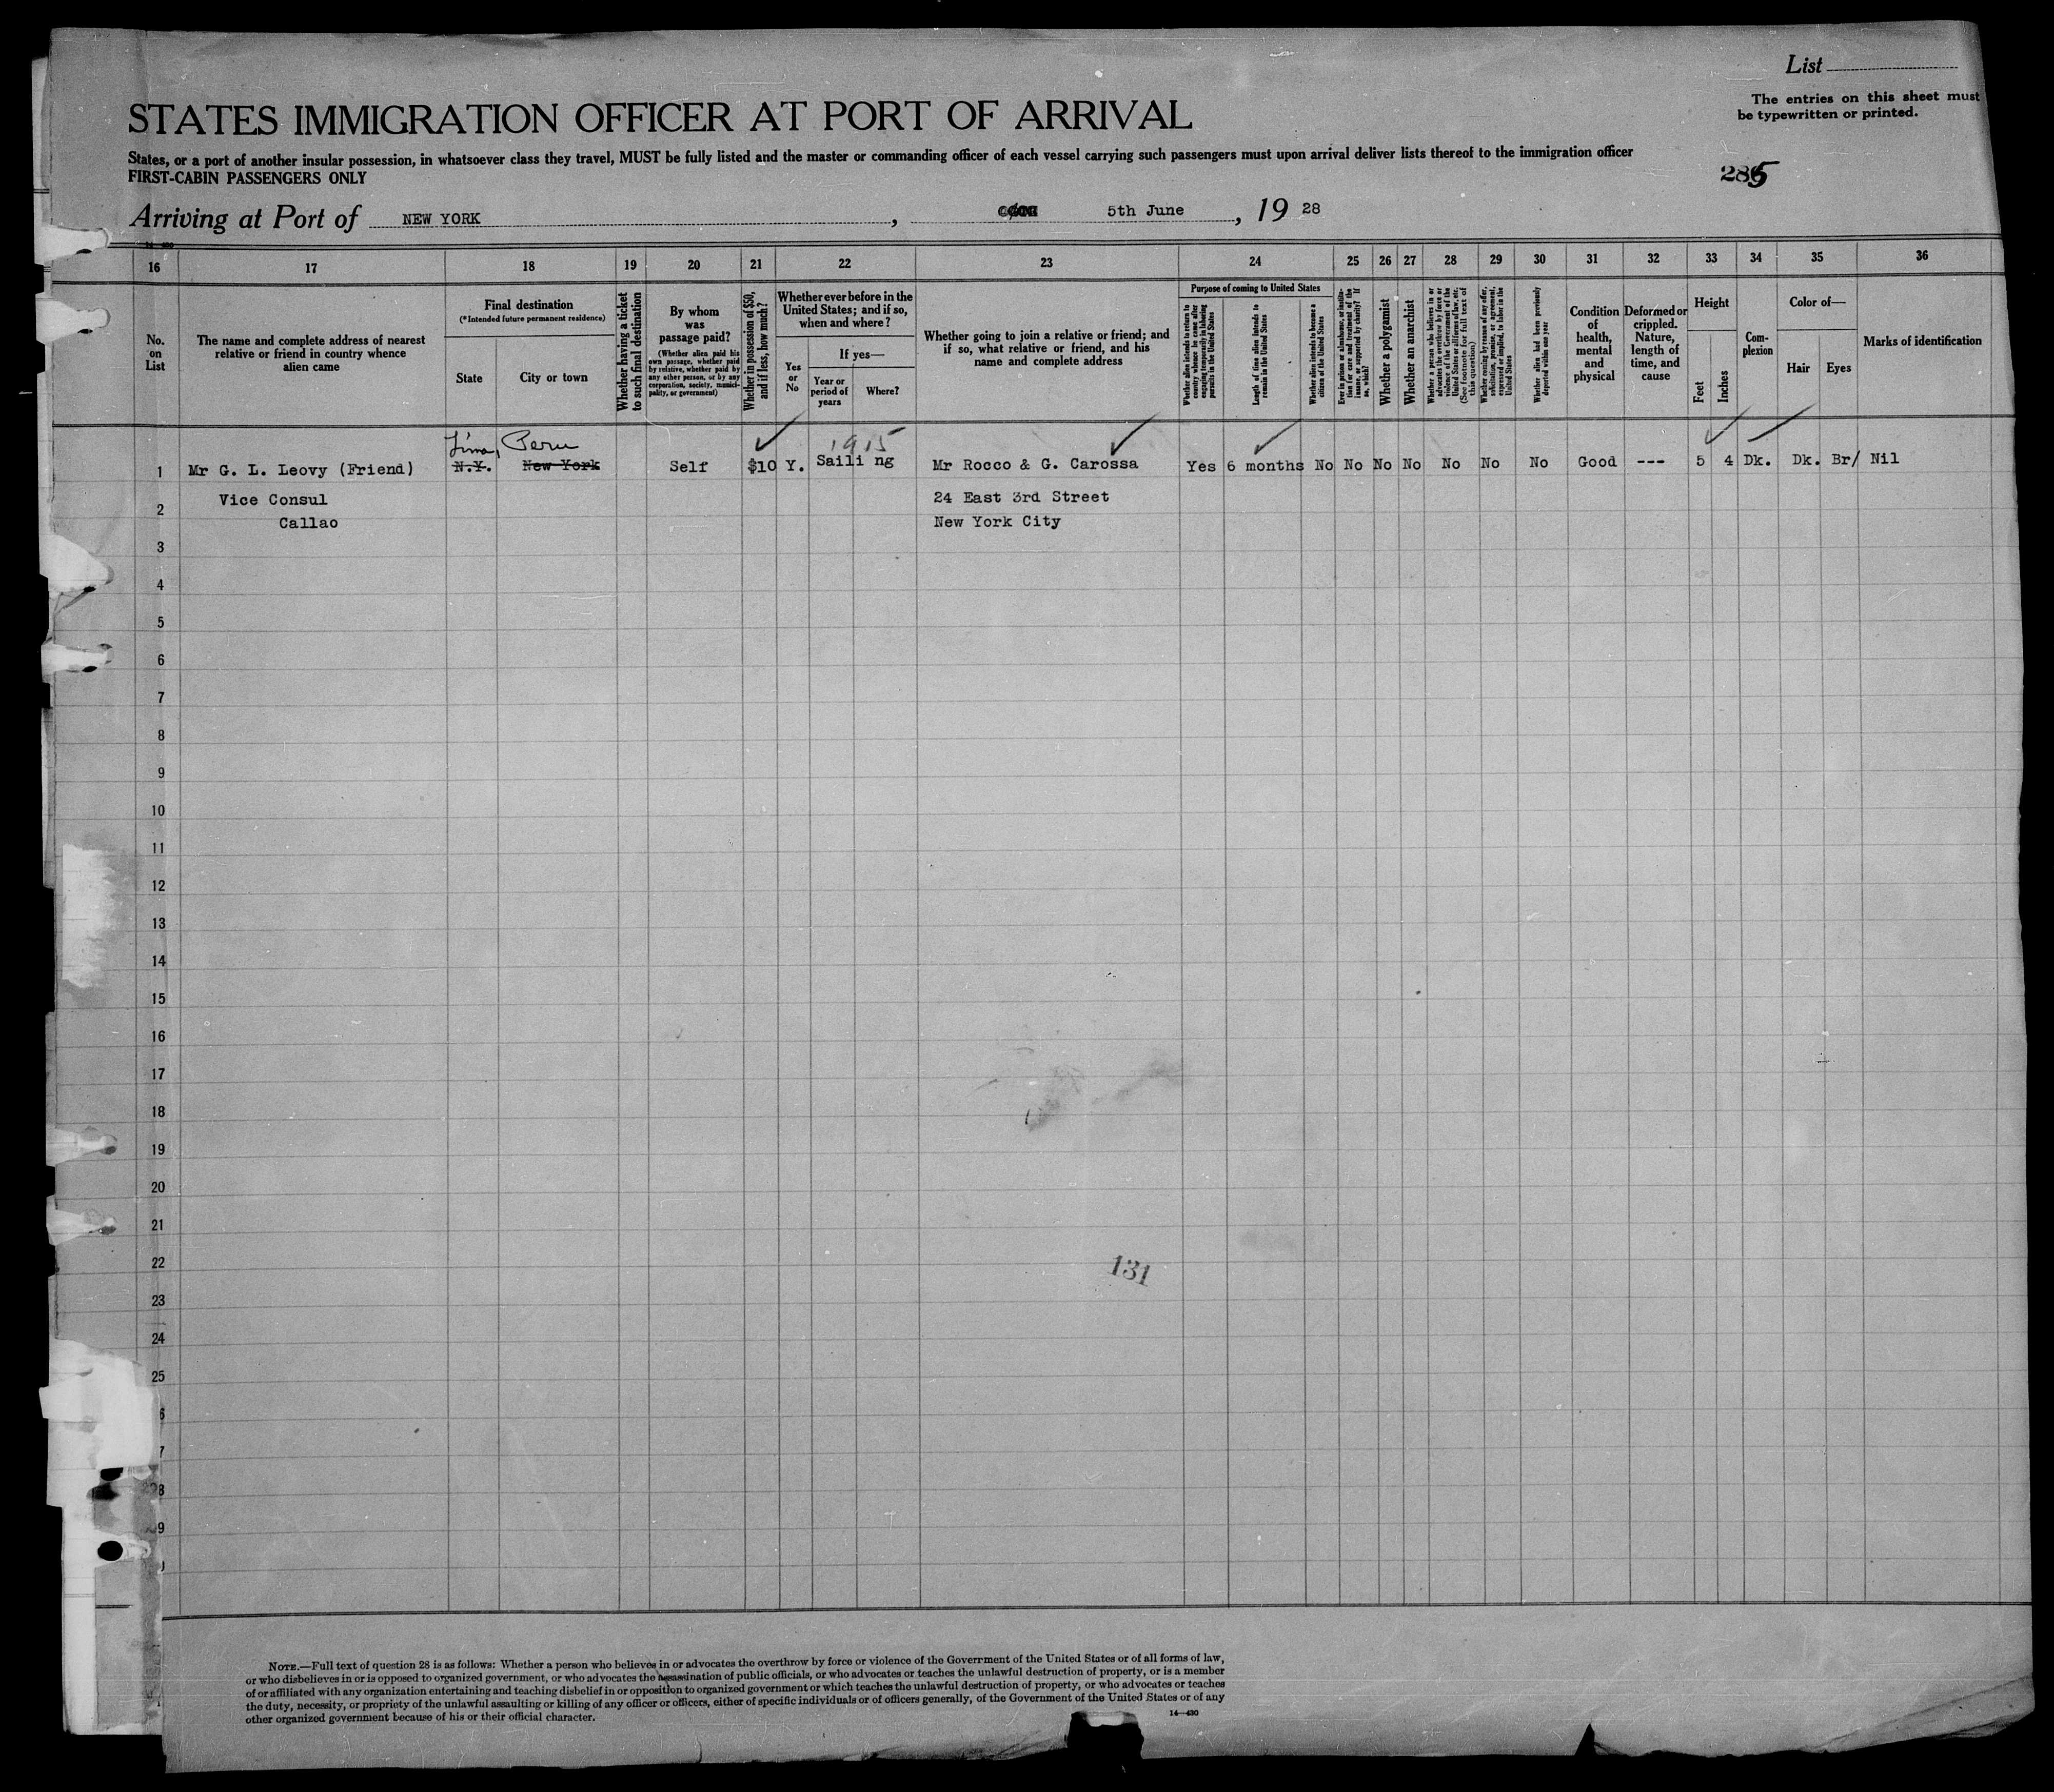 List
The entries on this sheet must
be typewritten or printed.
STATES IMMIGRATION OFFICER AT PORT OF ARRIVAL
States, or a port of another insular possession, in whatsoever class they travel, MUST be fully listed and the master or commanding officer of each vessel carrying such passengers must upon arrival deliver lists thereof to the immigration officer
FIRST-CABIN PASSENGERS ONLY
285
Arriving at Port of NEW YORK, 5th June, 19 28
16 17 18 19 20 21 22 23 24 25 26 27 28 29 30 31 32 33 34 35 36
No.
on
List
The name and complete address of nearest
relative or friend in country whence
alien came
Final destination
(*Intended future permanent residence)
State
City or town
Whether having a ticket
to such final destination
By whom
was
passage paid?
(Whether alien paid his
own passage, whether paid
by relative, whether paid by
any other person, or by any
corporation, society, munici-
pality, or government)
Whether in possession of $50,
and if less, how much?
Whether ever before in the
United States; and if so,
when and where?
Yes
or
No
If yes—
Year or
period of
years
Where?
Whether going to join a relative or friend; and
if so, what relative or friend, and his
name and complete address
Purpose of coming to United States
Whether alien intends to return to
country whence he came after
engaging temporarily in laboring
pursuits in the United States
Length of time alien intends to
remain in the United States
Whether alien intends to become a
citizen of the United States
Ever in prison or almshouse, or institu-
tion for care and treatment of the
insane, or supported by charity? If
so, which?
Whether a polygamist
Whether an anarchist
Whether a person who believes in or
advocates the overthrow by force or
violence of the Government of the
United States or all forms of law, etc.
(See footnote for full text of
this question)
Whether coming by reason of any offer,
solicitation, promise, or agreement,
expressed or implied, to labor in the
United States
Whether alien had been previously
deported within one year
Condition
of
health,
mental
and
physical
Deformed or
crippled.
Nature,
length of
time, and
cause
Height
Feet
Inches
Com-
plexion
Color of—
Hair
Eyes
Marks of identification
Lima, Peru
1915
1 Mr G. L. Leovy (Friend) N.Y. New York Self $10 Y. Saili ng Mr Rocco & G. Carossa Yes 6 months No No No No No No No Good --- 5 4 Dk. Dk. Br/ Nil
Vice Consul 24 East 3rd Street
2
Callao New York City
3
4
5
6
7
8
9
10
11
12
13
14
15
16
17
18
19
20
21
22
131
23
24
25
6
7
8
9
NOTE.—Full text of question 28 is as follows: Whether a person who believes in or advocates the overthrow by force or violence of the Goverrment of the United States or of all forms of law,
or who disbelieves in or is opposed to organized government, or who advocates the assassination of public officials, or who advocates or teaches the unlawful destruction of property, or is a member
of or affiliated with any organization entertaining and teaching disbelief in or opposition to organized government or which teaches the unlawful destruction of property, or who advocates or teaches
the duty, necessity, or propriety of the unlawful assaulting or killing of any officer or officers, either of specific individuals or of officers generally, of the Government of the United States or of any
other organized government because of his or their official character.
14—430